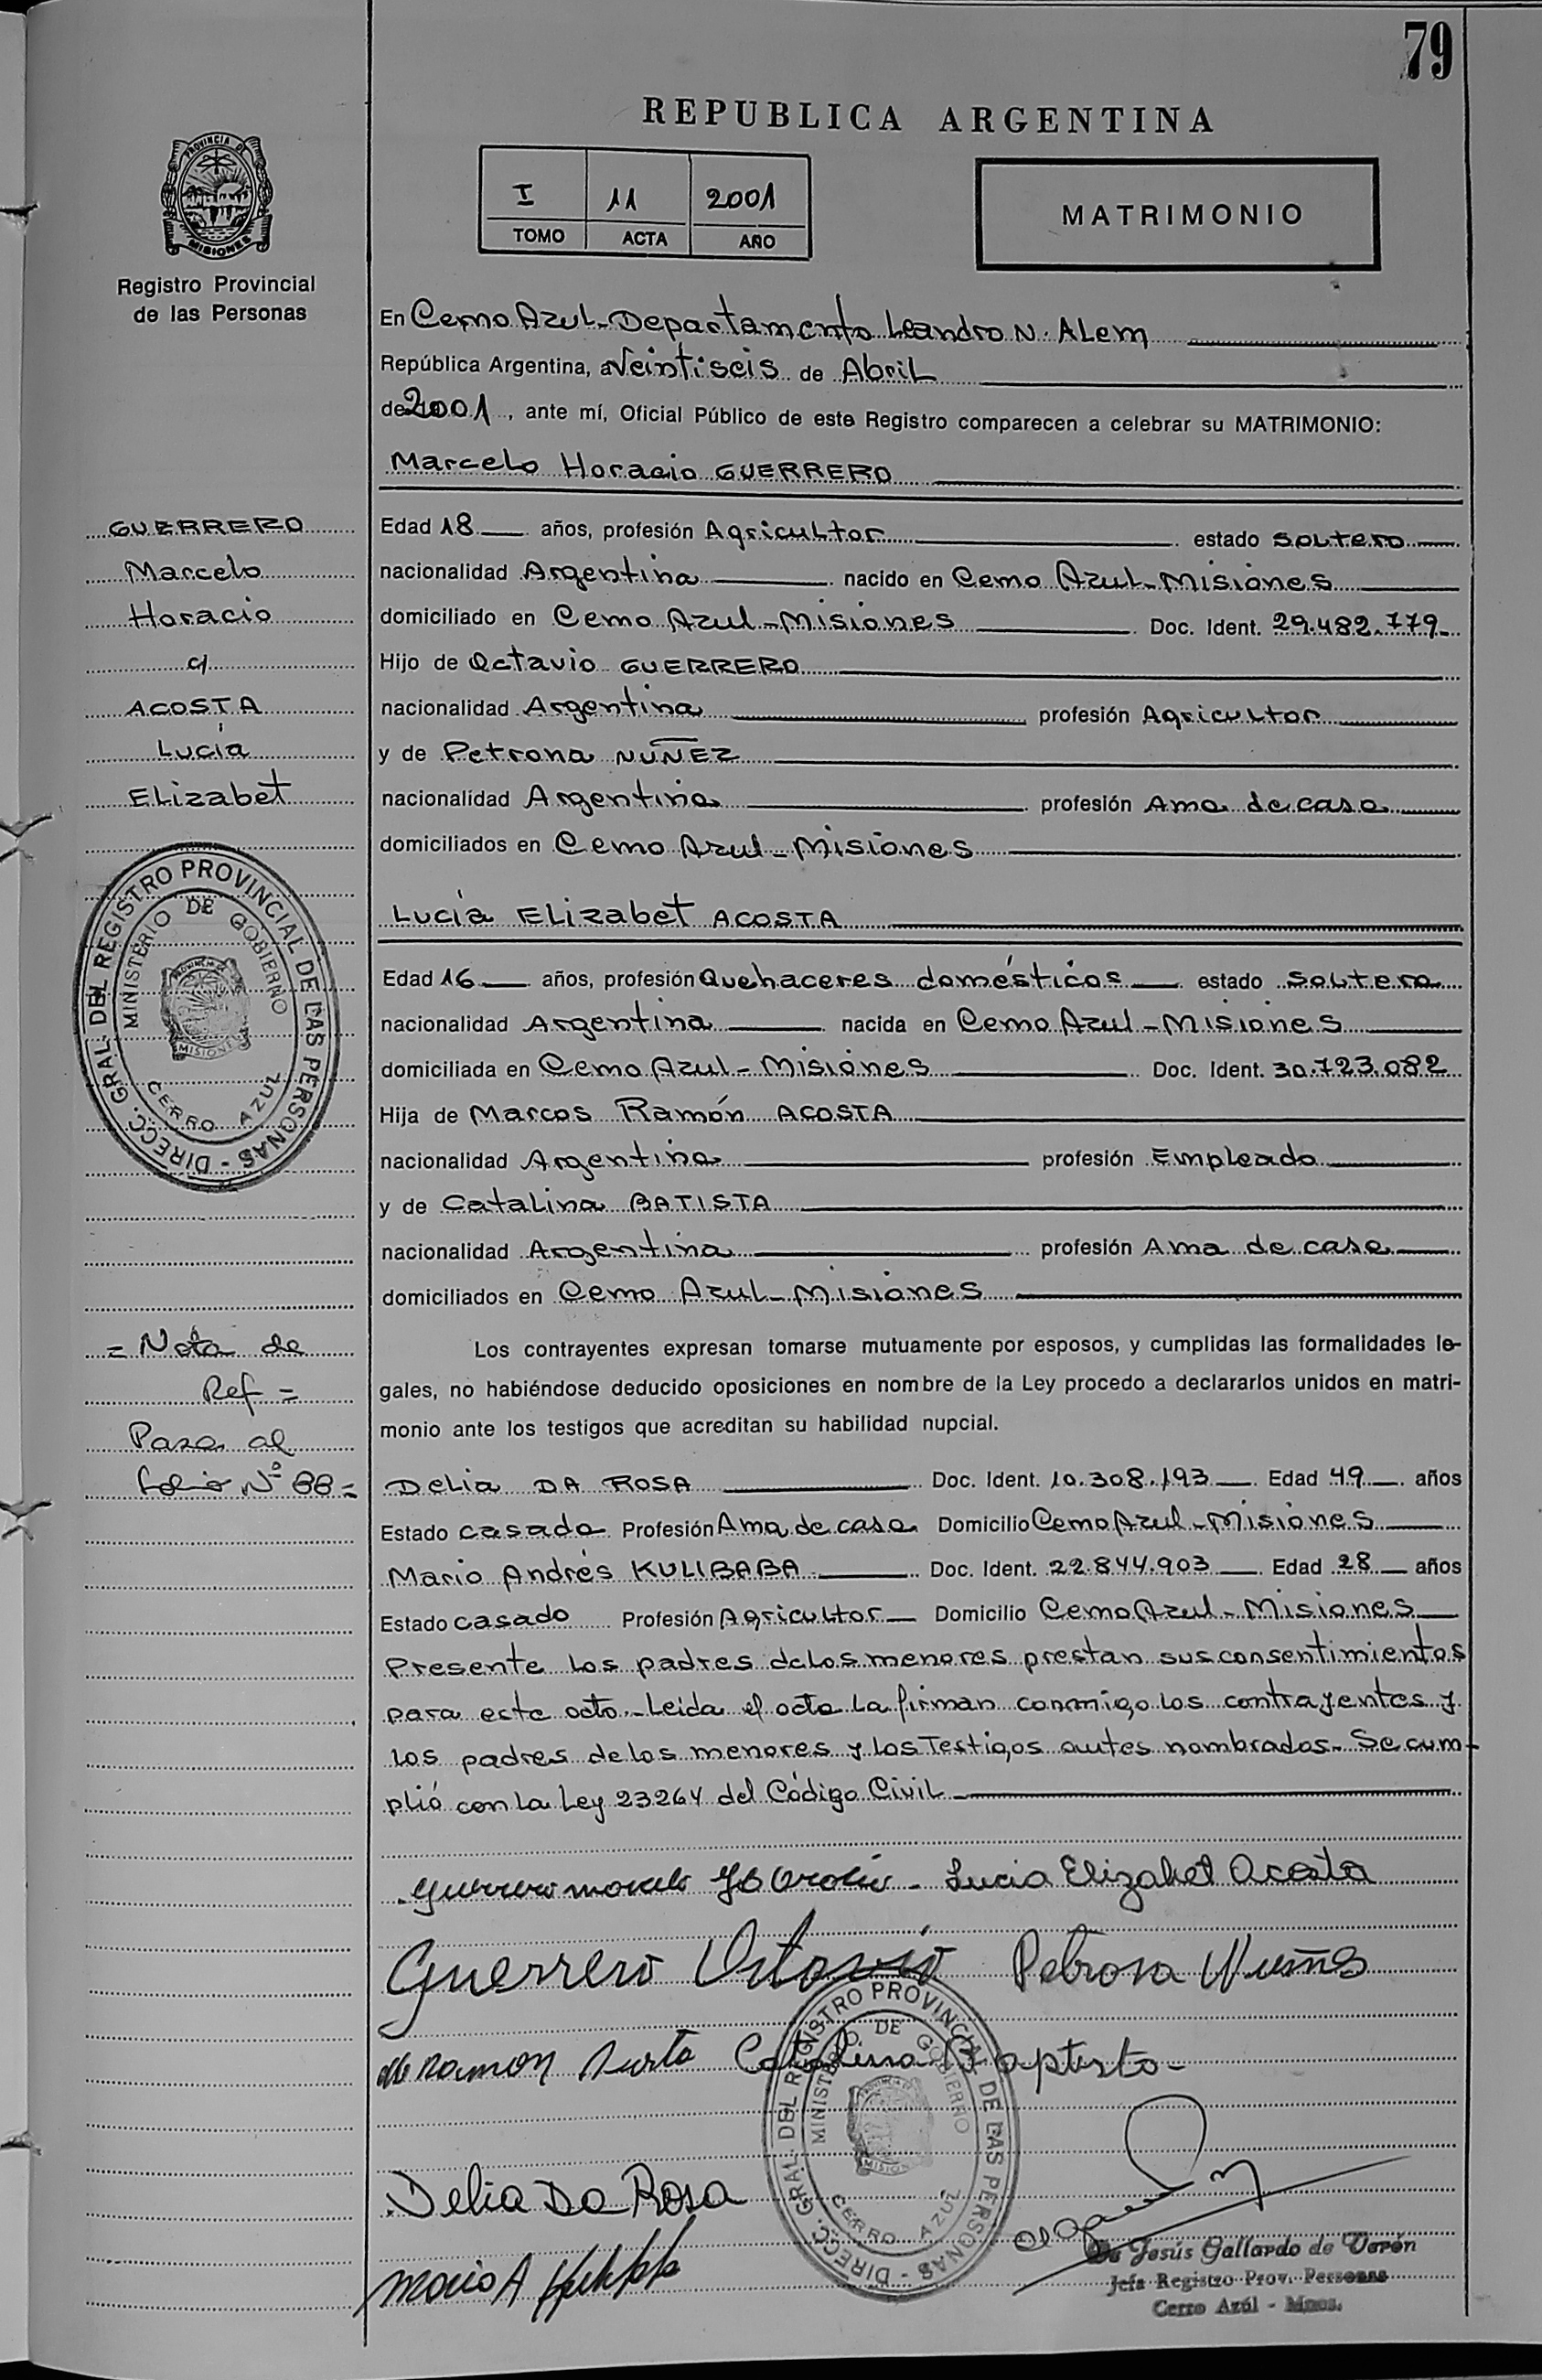 79
REPUBLICA ARGENTINA
I 11 2001
TOMO ACTA AÑO
MATRIMONIO
PROVINCIA DE
MISIONES
Registro Provincial
de las Personas
En Cerro Azul-Departamento Leandro N. Alem
República Argentina, a Veintiseis de Abril
de 2001, ante mí, Oficial Público de este Registro comparecen a celebrar su MATRIMONIO:
Marcelo Horacio GUERRERO
GUERRERO
Marcelo
Horacio
c/
ACOSTA
Lucía
Elizabet
Edad 18 años, profesión Agricultor estado soltero
nacionalidad Argentina nacido en Cerro Azul-Misiones
domiciliado en Cerro Azul-Misiones Doc. Ident. 29.482.779
Hijo de Octavio GUERRERO
nacionalidad Argentina profesión Agricultor
y de Petrona NUÑEZ
nacionalidad Argentina profesión Ama de casa
domiciliados en Cerro Azul-Misiones
Lucía Elizabet ACOSTA
Edad 16 años, profesión Quehaceres domésticos estado soltera
nacionalidad Argentina nacida en Cerro Azul-Misiones
domiciliada en Cerro Azul-Misiones Doc. Ident. 30.723.082
Hija de Marcos Ramón ACOSTA
nacionalidad Argentina profesión Empleado
y de Catalina BATISTA
nacionalidad Argentina profesión Ama de casa
domiciliados en Cerro Azul-Misiones
DIRECC. GRAL. DEL REGISTRO PROVINCIAL DE LAS PERSONAS -
MINISTERIO DE GOBIERNO
MISIONES
CERRO AZUL
= Nota de
Ref =
Pasa al
folio Nº 88 =
Los contrayentes expresan tomarse mutuamente por esposos, y cumplidas las formalidades le-
gales, no habiéndose deducido oposiciones en nombre de la Ley procedo a declararlos unidos en matri-
monio ante los testigos que acreditan su habilidad nupcial.
Delia DA ROSA Doc. Ident. 10.308.193 Edad 49 años
Estado casada Profesión Ama de casa Domicilio Cerro Azul-Misiones
Mario Andrés KULIBABA Doc. Ident. 22.844.903 Edad 28 años
Estado casado Profesión Agricultor Domicilio Cerro Azul-Misiones
Presente los padres de los menores prestan sus consentimientos
para este acto.-Leída el acta la firman conmigo los contrayentes y
los padres de los menores y los Testigos antes nombrados- Se cum-
plió con la Ley 23264 del Código Civil
Guerrero Marcelo - Lucia Elizabet Acosta
Guerrero Octavio Petrona Nuñes
Ramon Catalina Baptista-
Delia Da Rosa
Mario A
DIRECC. GRAL. DEL REGISTRO PROVINCIAL DE LAS PERSONAS -
MINISTERIO DE GOBIERNO
MISIONES
CERRO AZUL
De Jesús Gallardo de Verón
Jefa Registro Prov. Personas
Cerro Azúl - Mnes.